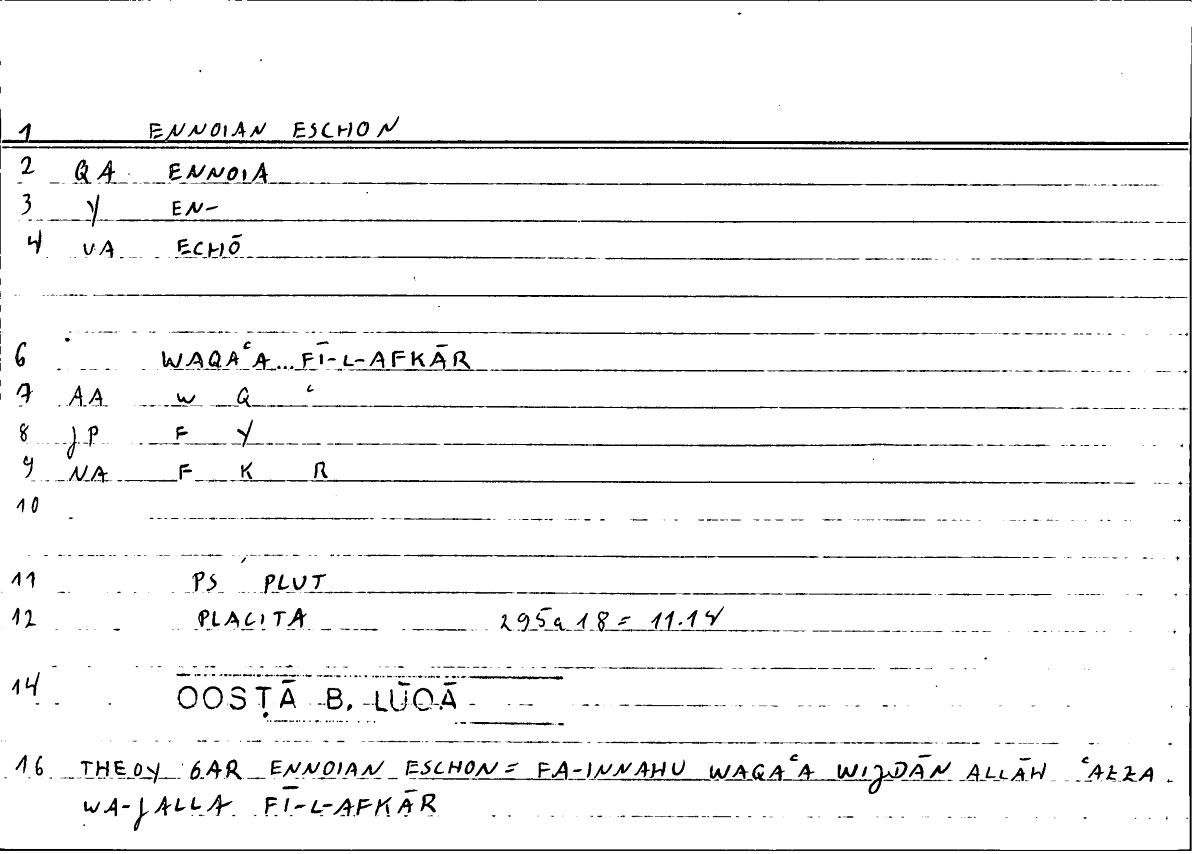 1 ENNOIAN ESCHON
2 QA ENNOIA
3 Y EN-
4 VA ECHŌ
6 WAQAʿA...FĪ-L-AFKĀR
7 AA W Q ʿ
8 JP F Y
9 NA F K R
10
11 PS PLUT
12 PLACITA 295a18 = 11.14
14 QOSṬĀ B. LŪQĀ
16 THEOY GAR ENNOIAN ESCHON = FA-INNAHU WAQAʿA WIJDĀN ALLĀH ʿAZZA
WA-JALLA FĪ-L-AFKĀR